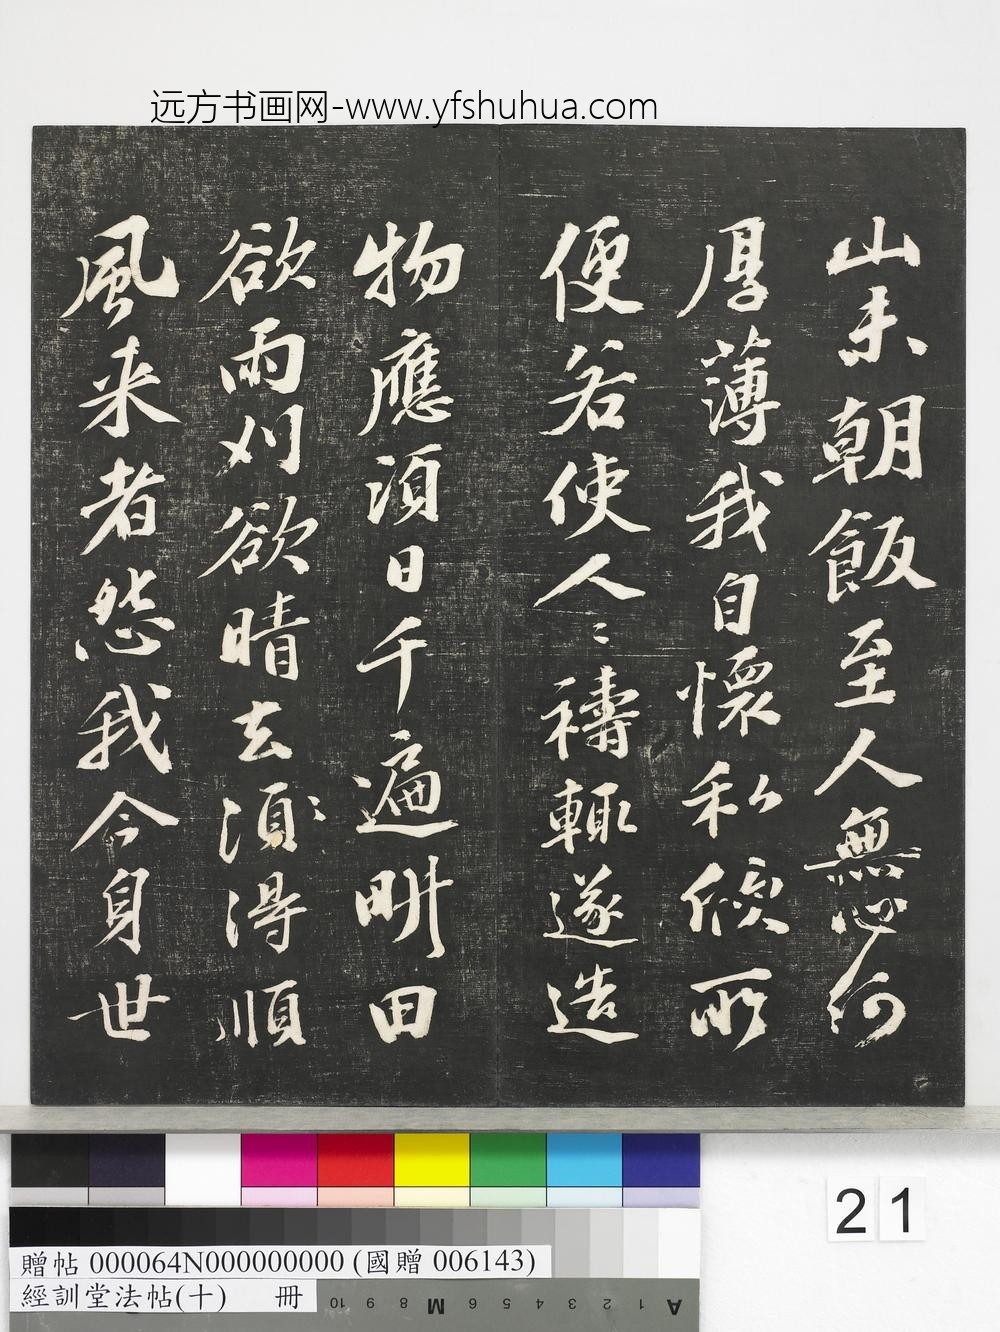 远方书画网-www.yfshuhua.com
山未朝飯至人無心何
厚薄我自懷私欣所
便若使人〻禱輒遂造
物應須日千遍畊田
欲雨刈欲晴去須〻得順
風来者怨我今身世
21
贈帖 000064N000000000 (國贈 006143)
經訓堂法帖(十) 冊
A 1 2 3 4 5 6 M 8 9 10